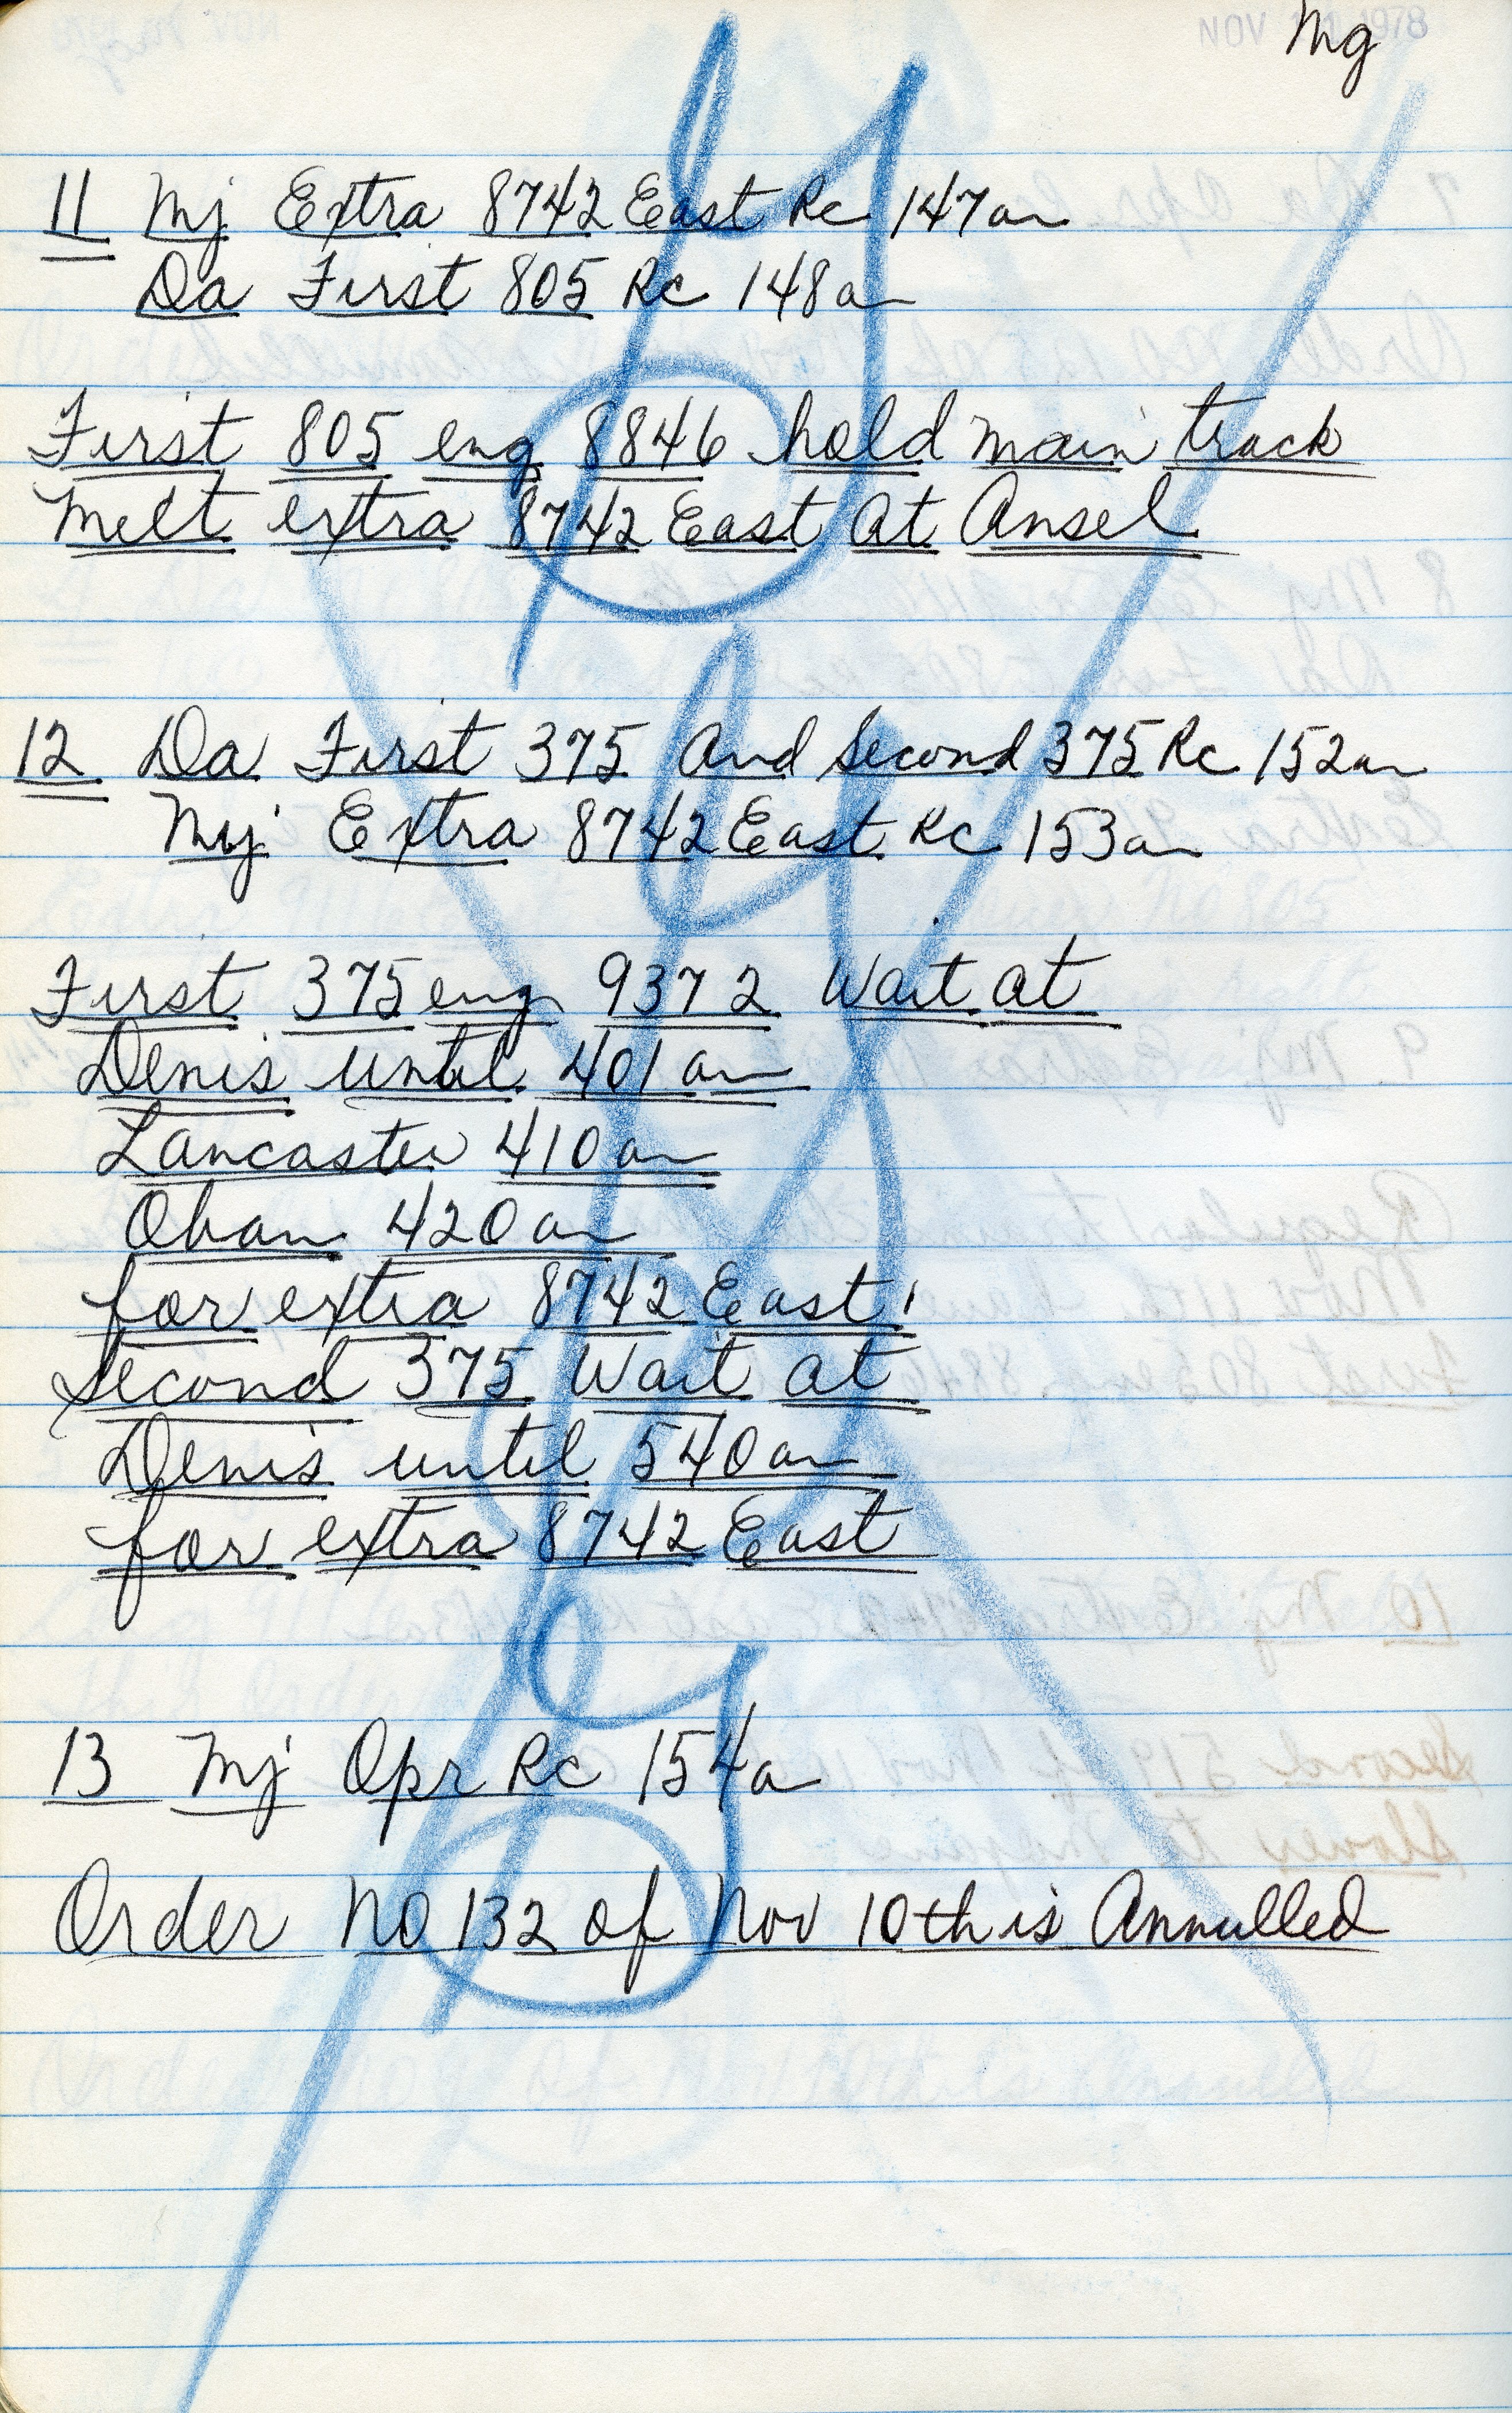 NOV 11 1978
Mg
11 Mj Extra 8742 East Rc 147am
Da First 805 Rc 148a
First 805 eng 8846 hold main track
Meet extra 8742 East at Ansel
12 Da First 375 And Second 375 Rc 152am
Mj Extra 8742 East Rc 153am
First 375 eng 9372 Wait at
Denis until 401 am
Lancaster 410 am
Oban 420 am
for extra 8742 East
Second 375 Wait at
Denis until 540 am
for extra 8742 East
13 Mj Opr Rc 154a
Order No 132 of Nov 10th is Annulled